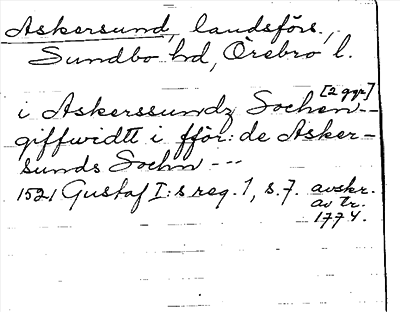 Askersund, landsförs.,
Sundbo hd, Örebro l.
[2 ggr]
i Askerssundz Sochen --
giffwidtt i fför: de Asker-
sunds Sochn ---
1521 Gustaf I:s reg. 1, s. 7. avskr.
av tr.
1774.